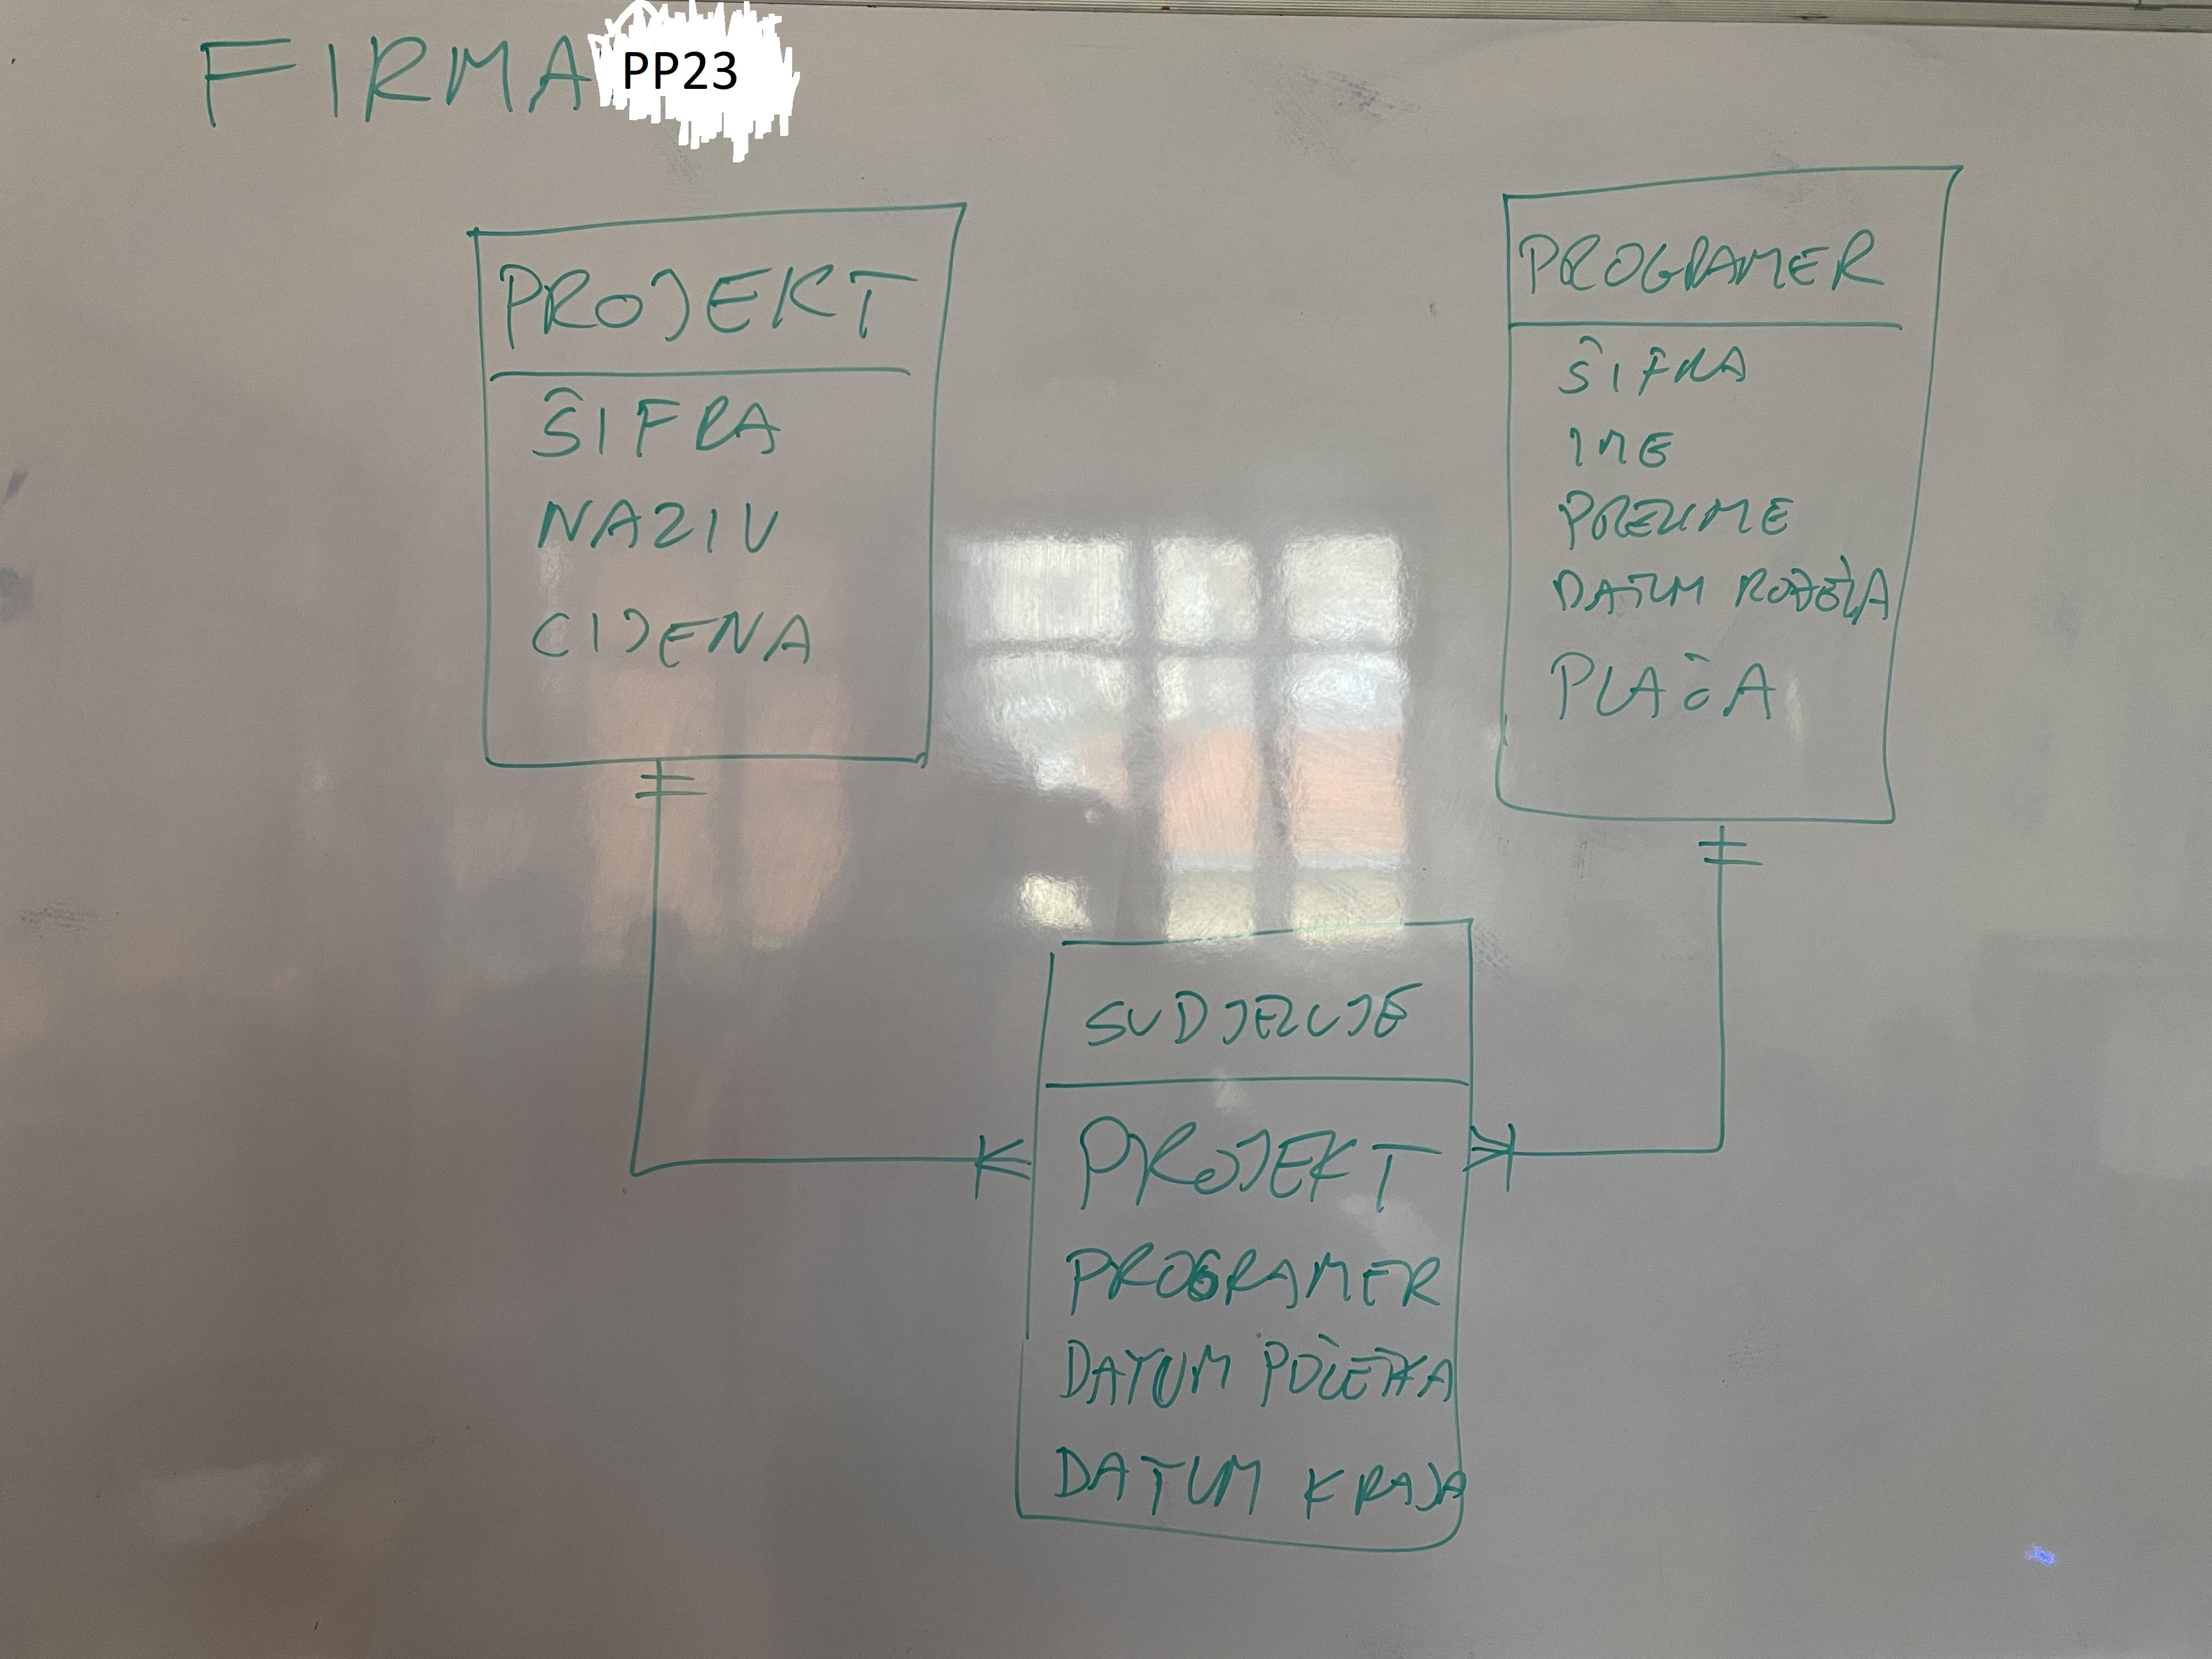 FIRMA PP23
PROJEKT
ŠIFRA
NAZIV
CIJENA
PROGRAMER
ŠIFRA
IME
PREZIME
DATUM ROĐENJA
PLAĆA
SUDJELUJE
PROJEKT
PROGRAMER
DATUM POČETKA
DATUM KRAJA